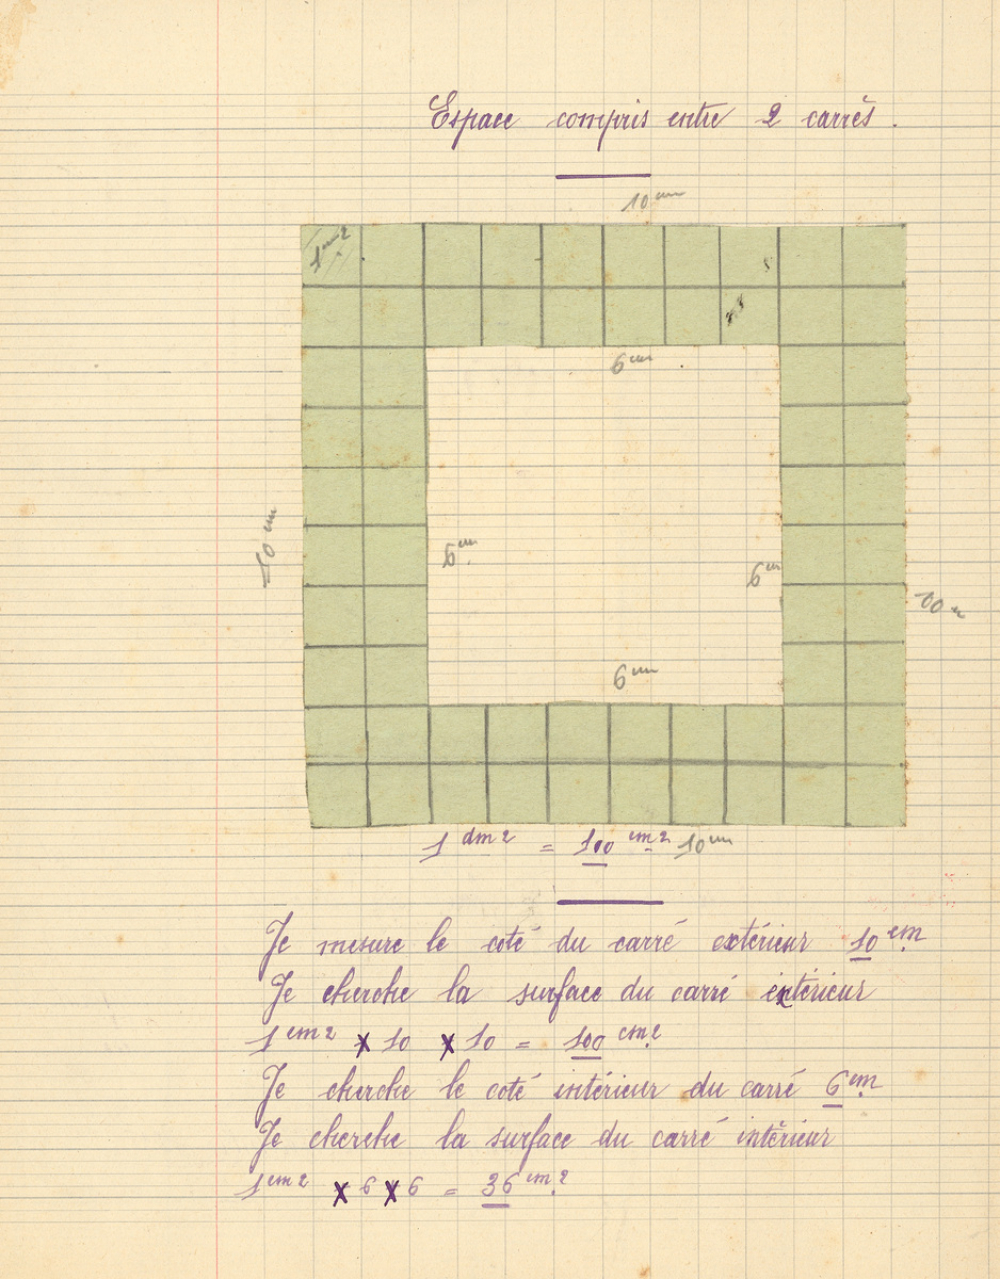 Espace compris entre 2 carrés.
10 cm
1 cm2
6 cm
10 cm
6 cm
6 cm
10 m
6 cm
1 dm2 = 100 cm2 10 cm
Je mesure le coté du carré extérieur 10 cm.
Je cherche la surface du carré extérieur
1 cm2 x 10 x 10 = 100 cm2
Je cherche le coté intérieur du carré 6 cm.
Je cherche la surface du carré intérieur
1 cm2 x 6 x 6 = 36 cm2